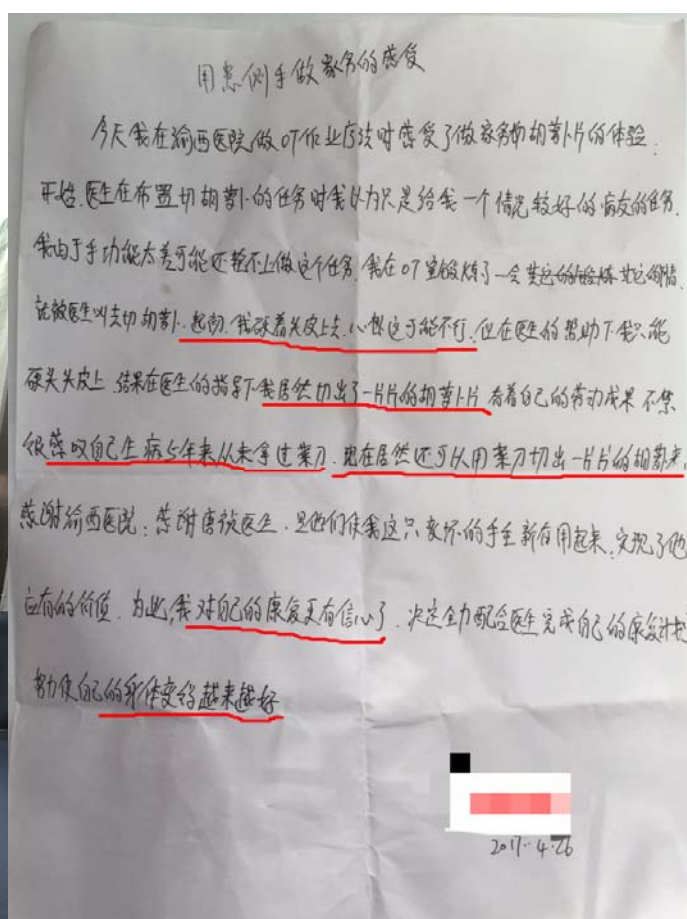 用患侧手做家务的感受
今天我在渝西医院做OT作业疗法时感受了做家务切胡萝卜片的体验.
开始.医生在布置切胡萝卜的任务时我以为只是给我一个情况较好的病友的任务.
我由于手功能太差可能还轮不上做这个任务.我在OT室锻炼了一会其它的
就被医生叫去切胡萝卜.起初.我硬着头皮上去.心想这可能不行.但在医生的帮助下我只能
硬头头皮上.结果在医生的指导下我居然切出了一片片的胡萝卜片 看着自己的劳动成果 不禁
很感叹自己生病5年来从未拿过菜刀.现在居然还可以用菜刀切出一片片的胡萝卜来,
感谢渝西医院;感谢唐 医生.是他们使我这只变坏的手重新有用起来.实现了他
应有的价值.为此,我对自己的康复更有信心了.决定全力配合医生完成自己的康复计划
努力使自己的身体变得越来越好
2017.4.26